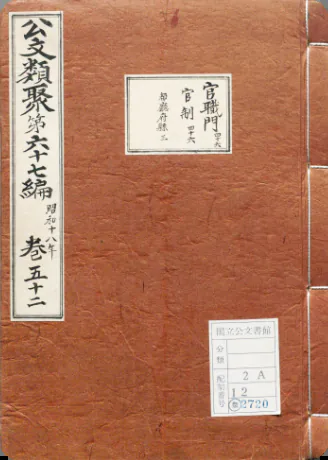 公文類聚第六十七編 昭和十八年 巻五十二
官職門 四十六
官制 四十六
都庁府県 二
国立公文書館
分類
配架番号
2 A
12
類 2720